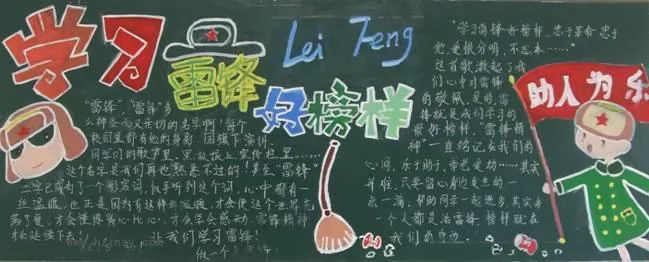 学习
雷锋
Lei Feng
好榜样
"雷锋","雷锋"多
么神圣而又亲切的名字啊!每个
校园里都有他的身影,国旗下演讲、
同学们的歌声里,黑板报上,宣传栏里……
这个名字是我们再也熟悉不过的!甚至"雷锋"
二字已成为了一个形容词,似乎听到这个词,心中都有一
丝温暖,也正是因为有这样的温暖,才会使这个世界充
满了爱,才会懂得将心比心,才会学会感动,雷锋精神
才能延续下去!
让我们学习雷锋!
做一个
"学习雷锋好榜样,忠于革命忠于
党,爱恨分明,不忘本……"
这首歌激起了我
们心中对雷锋
的敬佩,是的,雷
锋就是我们学习的
最好榜样,"雷锋精
神"一直铭记在我们的
心间,乐于助人,
其实
并难,只要留心身边发生的一
点一滴,帮助同学一起进步,其实每
一个人都是活雷锋,榜样就在
我们的身边。
助人为乐